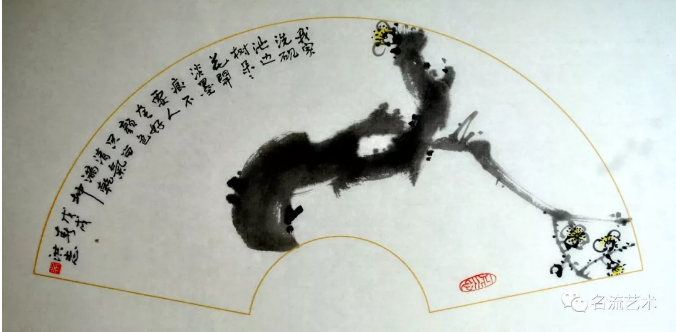 我家
洗砚
池边
树朵々
花開
淡墨
痕不
要人
夸好
颜色
只留
清氣
满乾
坤
戊戌
名流艺术